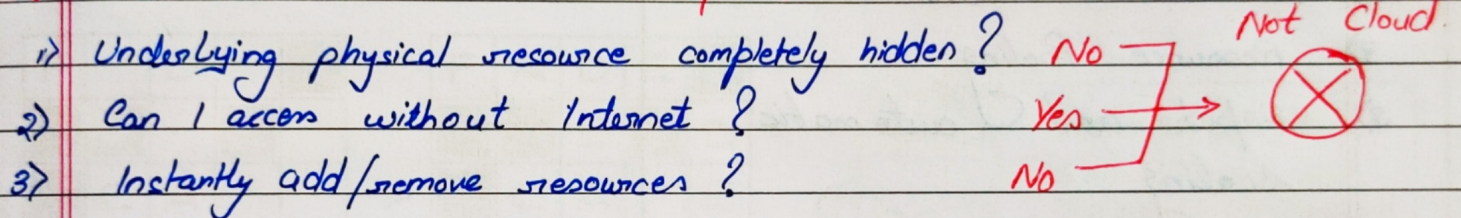 Not Cloud.
1) Underlying physical resource completely hidden? No
2) Can I access without Internet? Yes
3) Instantly add/remove resources? No